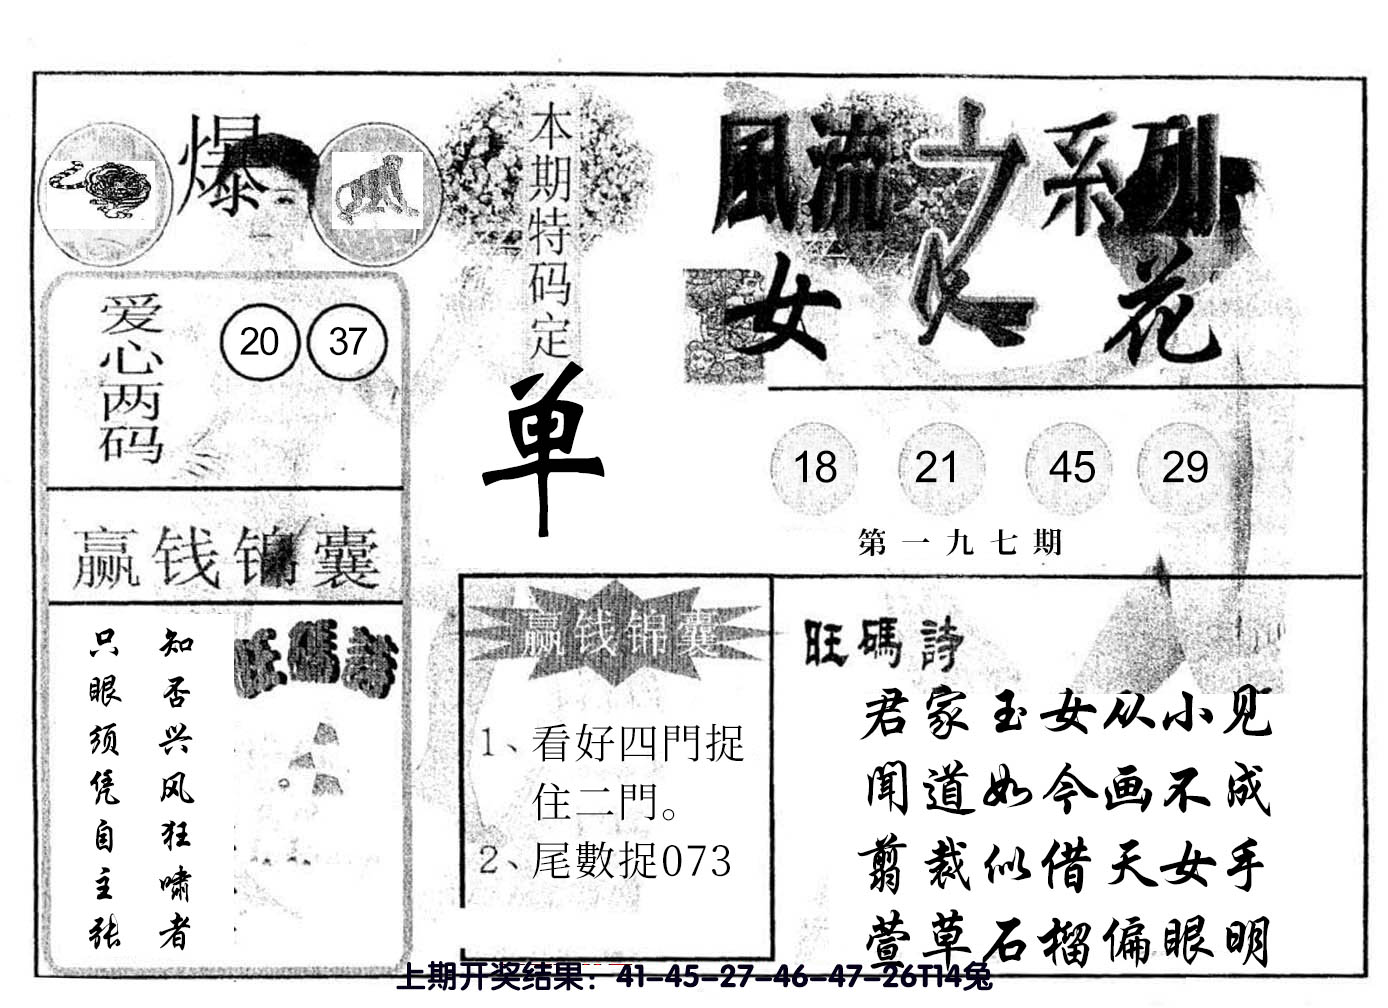 爆
爱心两码
20 37
赢钱锦囊
知否兴风狂啸者
只眼须凭自主张
旺碼詩
本期特码定
单
風流之系列
女人花
18 21 45 29
第一九七期
赢钱锦囊
1、看好四門捉
住二門。
2、尾數捉073
旺碼詩
君家玉女从小见
闻道如今画不成
剪裁似借天女手
萱草石榴偏眼明
上期开奖结果：41-45-27-46-47-26T14兔